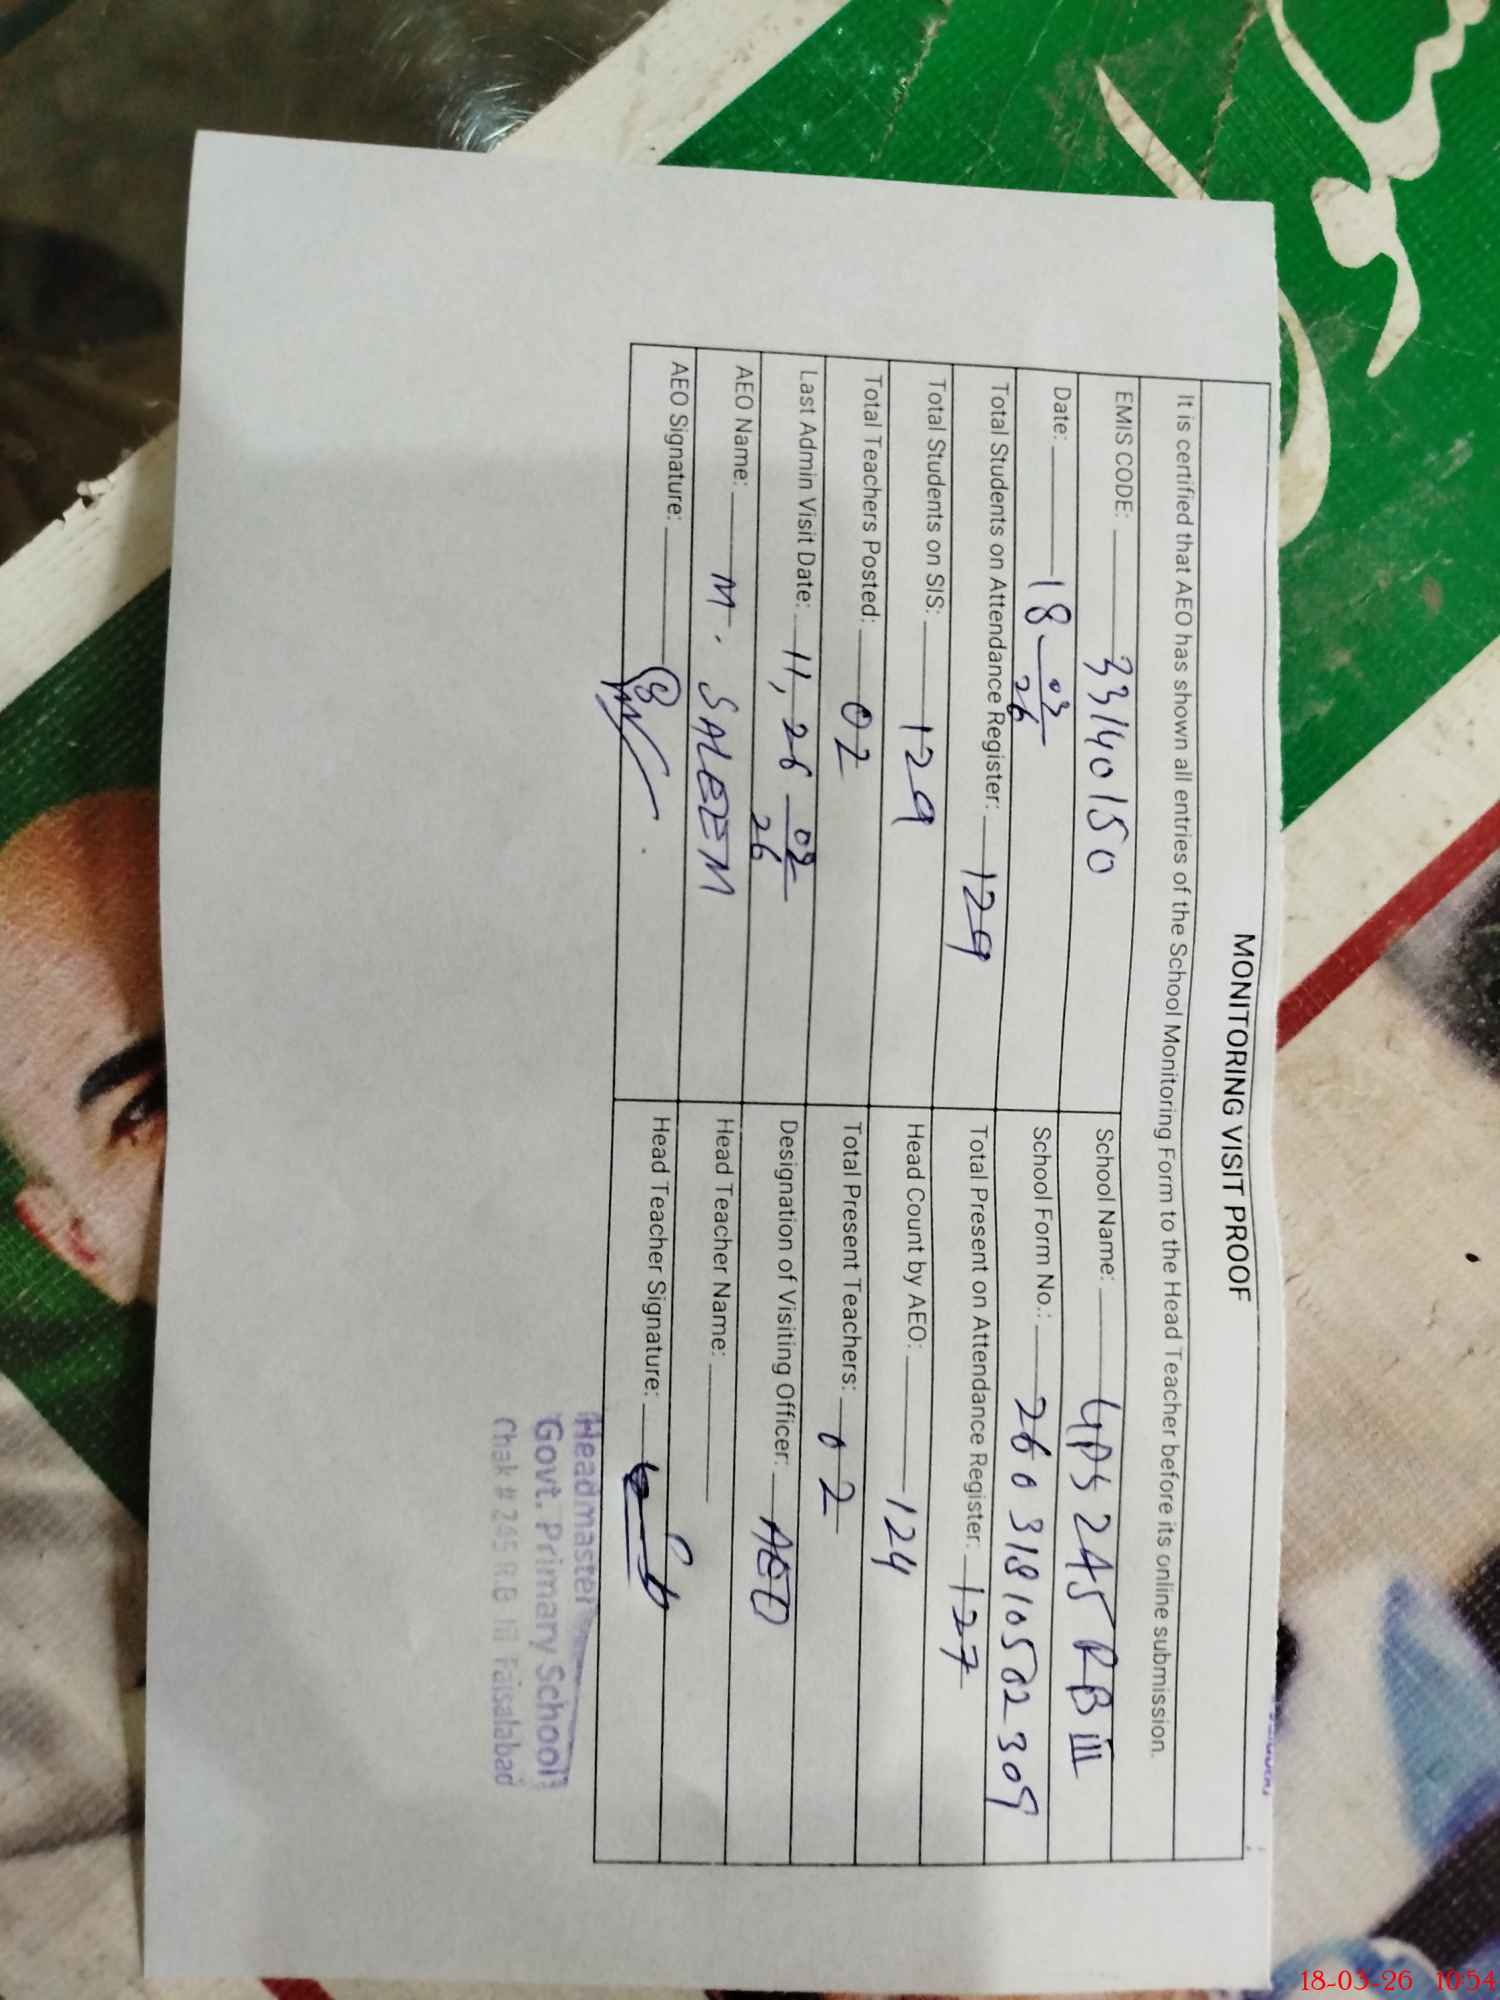 MONITORING VISIT PROOF
It is certified that AEO has shown all entries of the School Monitoring Form to the Head Teacher before its online submission.
EMIS CODE: 33140150
School Name: GPS 245 RB III
Date: 18-03/26
School Form No.: 26031810502309
Total Students on Attendance Register: 129
Total Present on Attendance Register: 127
Total Students on SIS: 129
Head Count by AEO: 124
Total Teachers Posted: 02
Total Present Teachers: 02
Last Admin Visit Date: 11, 26 02/26
Designation of Visiting Officer: AEO
AEO Name: M. SALEEM
Head Teacher Name:
AEO Signature:
Head Teacher Signature:
Headmaster
Govt. Primary School
Chak # 245 R.B III Faisalabad
18-03-26 10:54